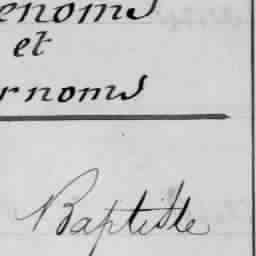 enoms
et
rnoms
Baptiste